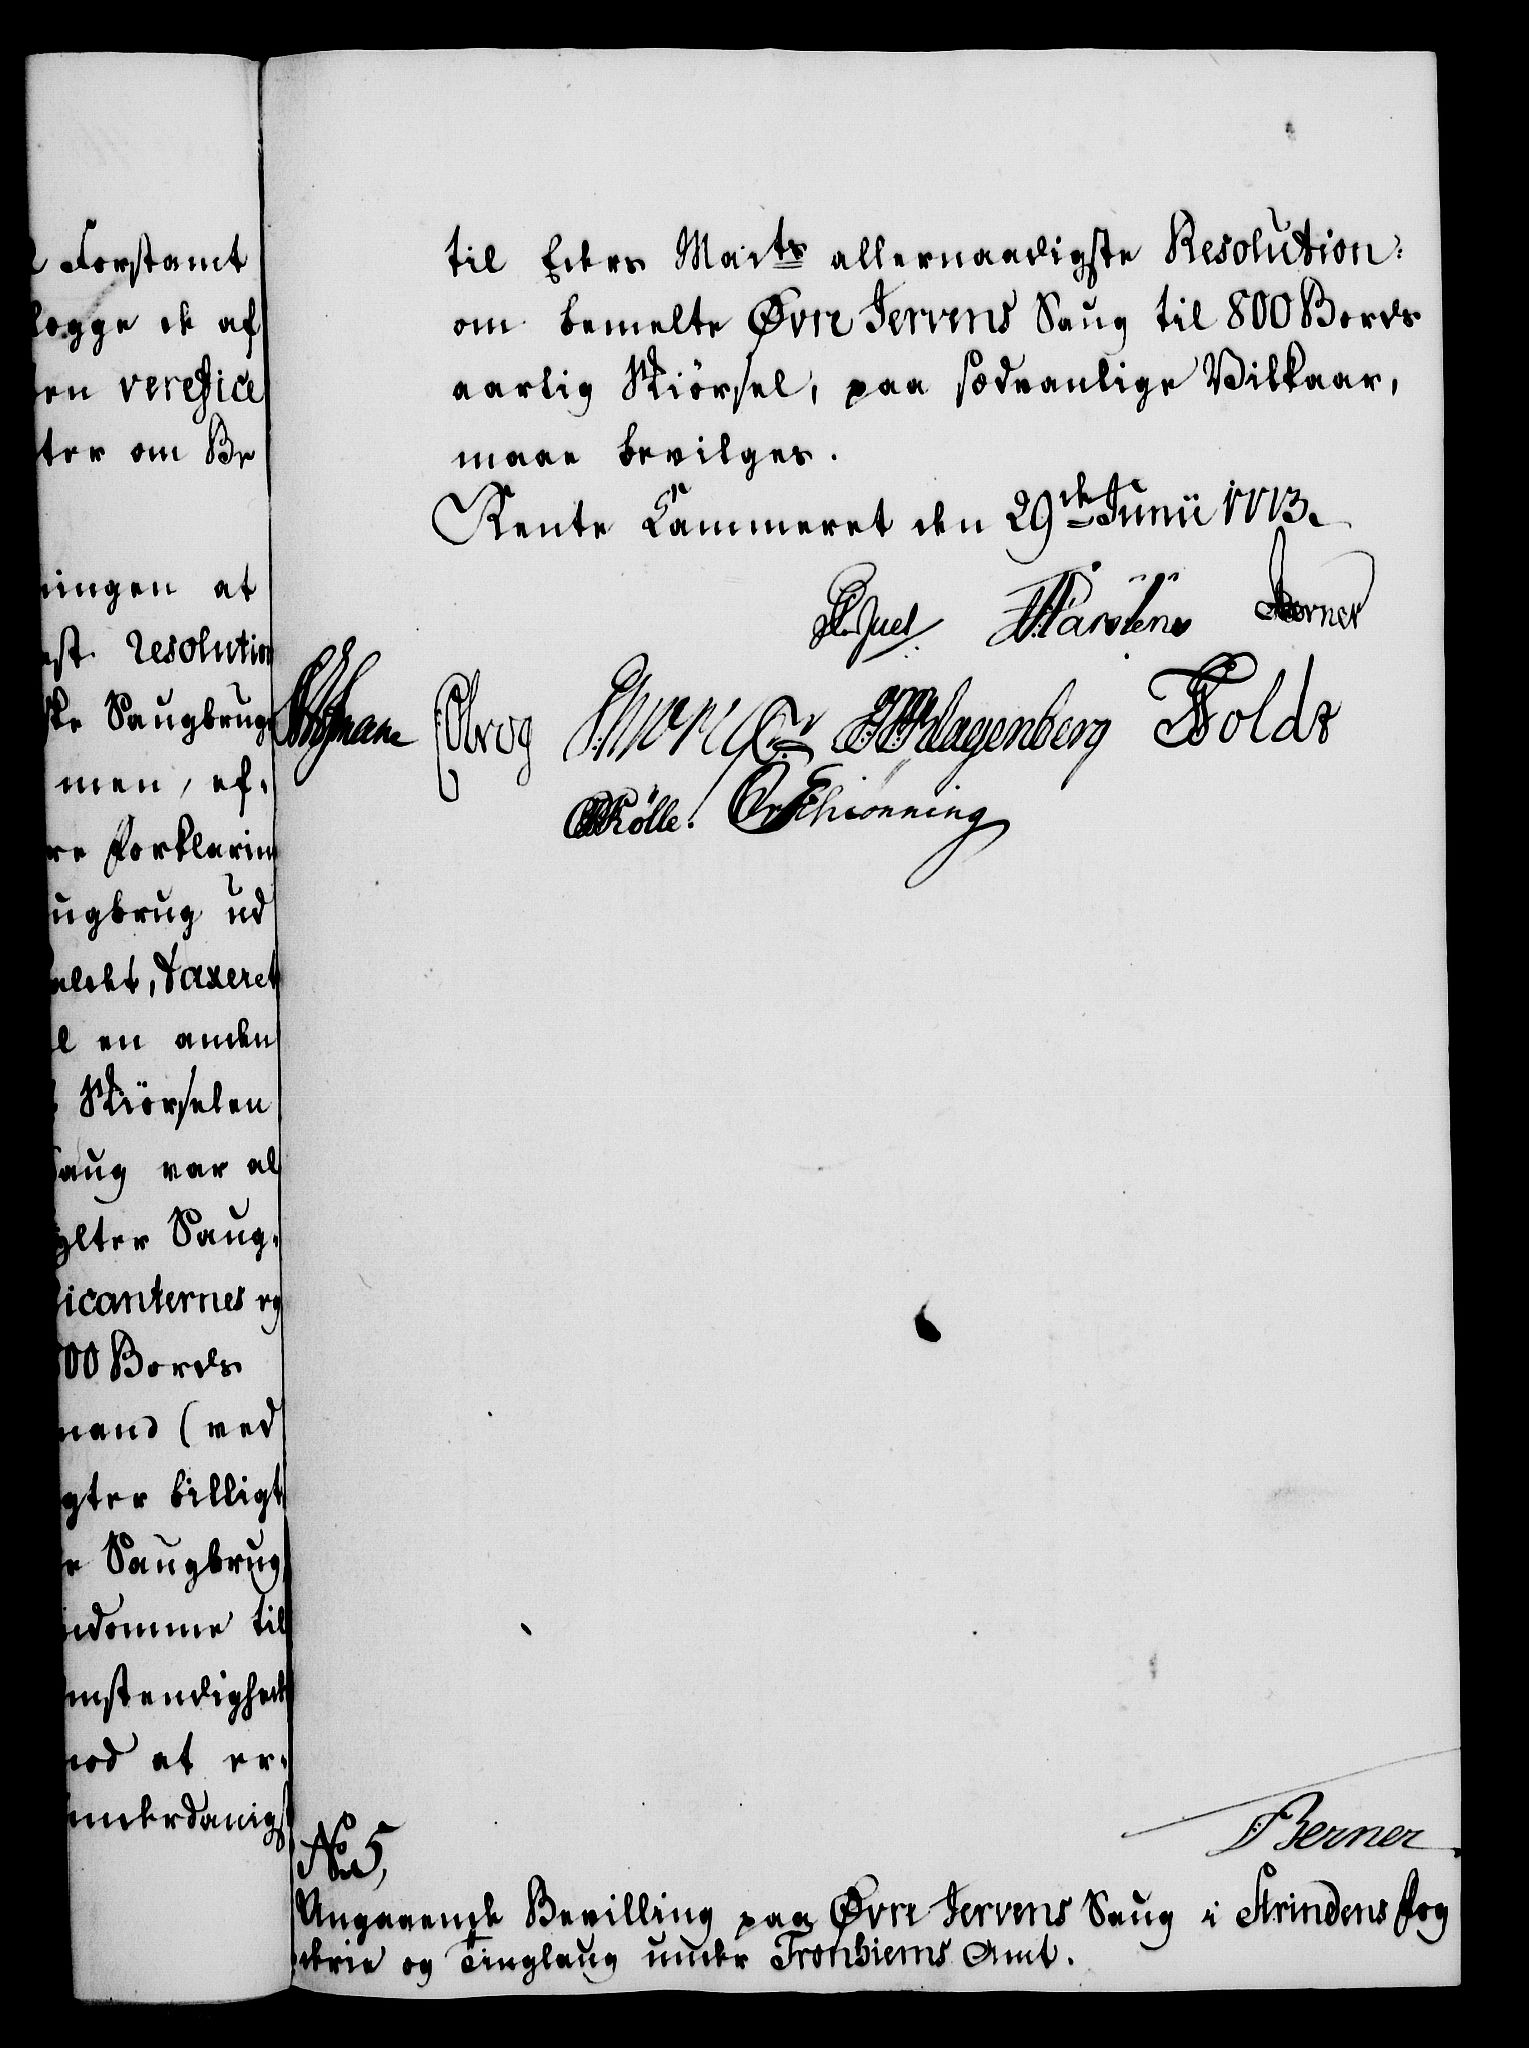 Forstamt
logge de af
en verefice
ter om Be
ningen at
est resolution
ske Saugbrug
men, ef-
re Forklaring
ugbrug ud
taxeret
l en anden
Kiørselen
Saug var al
Saug-
icanternes og
00 Bords
mand (ved
gter billigt
e Saugbrug
indomme til
mstendighed
mod at er-
underdanigst
til Eders Maits allernaadigste Resolution:
om bemelte Øvre Jervens Saug til 800 Bords
aarlig Skiørsel, paa sædvanlige Vilkaar,
maae bevilges.
Rente Cammeret den 29de Junii 1773.
Juel Karstens Berner
Hofmann Olrog Wagenberg Holdt
Kölle. Schionning
Berner
No 5,
Angaaende Bevilling paa Øvre Jervens Saug i Strindens Fog
derie og Tinglaug under Tronhiems Amt.